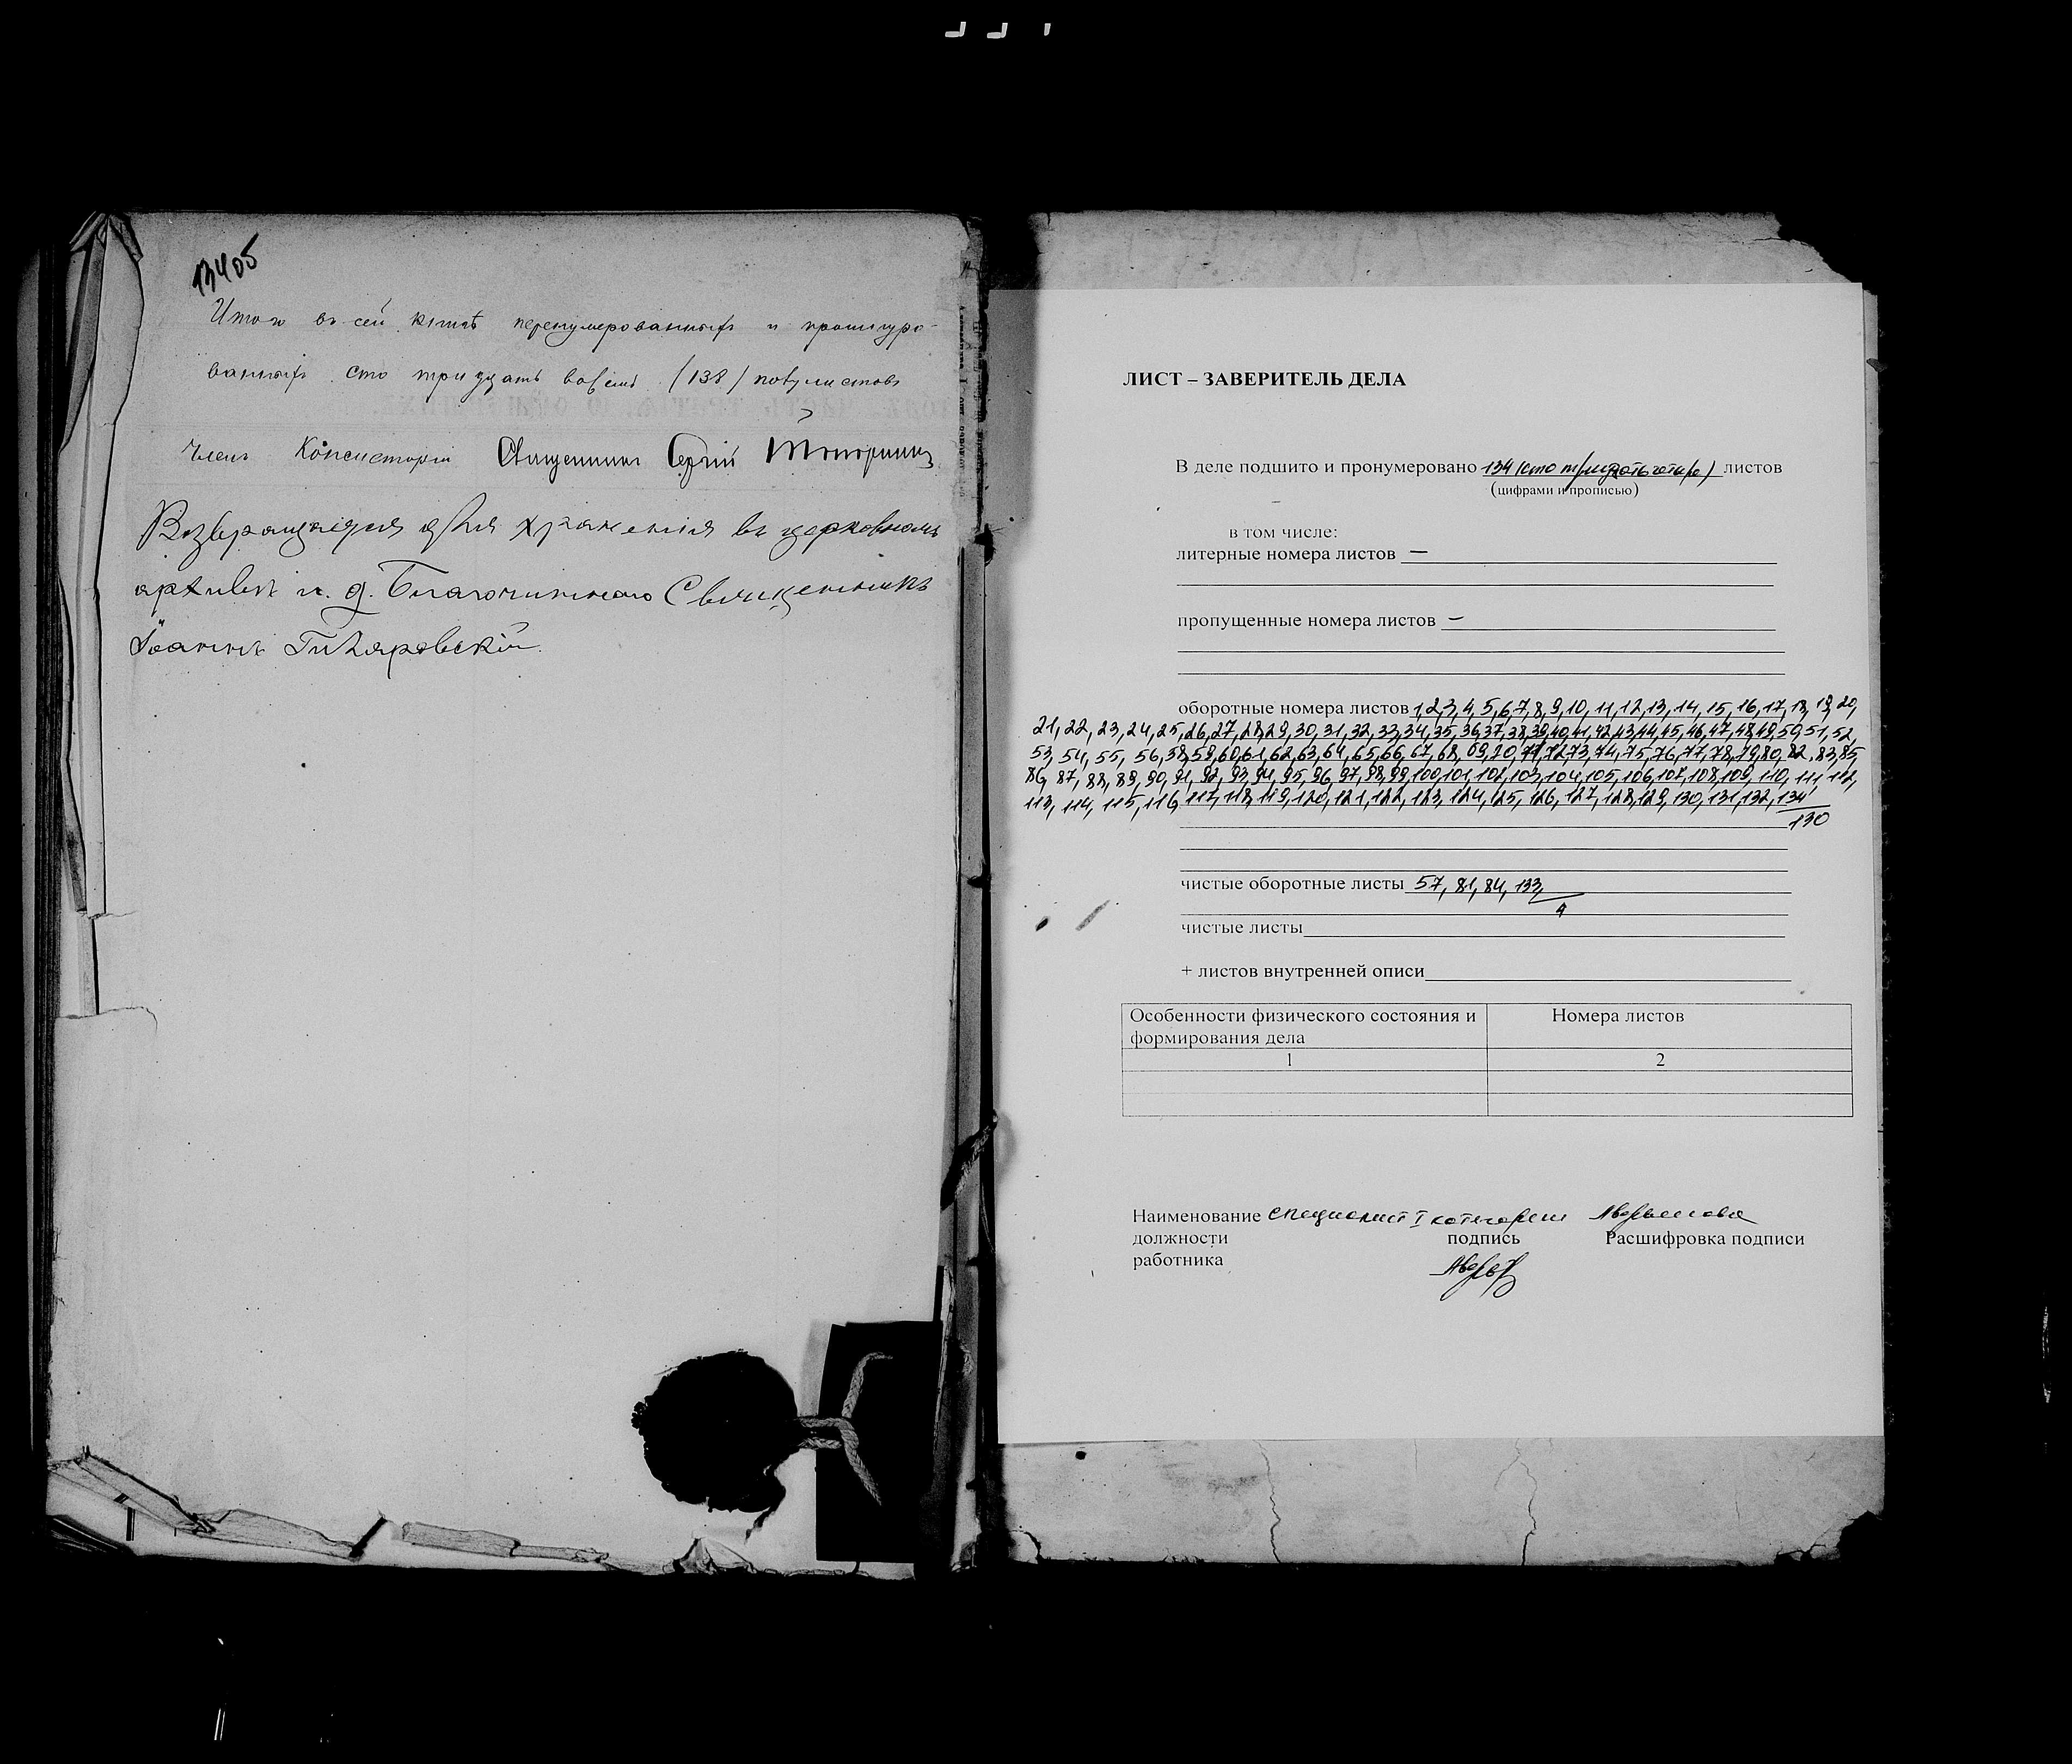 13405
Итого въ сей книгѣ перенумерованныхъ и прошнуро-
ванныхъ сто тридцать восемь (138) полулистовъ
Членъ Консисторіи Священникъ Сергій Топоринъ
Возвращается для храненія въ церковномъ
архивѣ и. д. Благочиннаго Священникъ
Іоаннъ Гиляровскій.
ЛИСТ – ЗАВЕРИТЕЛЬ ДЕЛА
В деле подшито и пронумеровано 134 (сто тридцать четыре) листов
(цифрами и прописью)
в том числе:
литерные номера листов —
пропущенные номера листов —
оборотные номера листов 1,2,3,4,5,6,7,8,9,10,11,12,13,14,15,16,17,18,19,20,
21,22,23,24,25,26,27,28,29,30,31,32,33,34,35,36,37,38,39,40,41,42,43,44,45,46,47,48,49,50,51,52,
53,54,55,56,58,59,60,61,62,63,64,65,66,67,68,69,70,71,72,73,74,75,76,77,78,79,80,82,83,85,
86,87,88,89,90,91,92,93,94,95,96,97,98,99,100,101,102,103,104,105,106,107,108,109,110,111,112,
113,114,115,116,117,118,119,120,121,122,123,124,125,126,127,128,129,130,131,132,134
130
чистые оборотные листы 57, 81, 84, 133,
4
чистые листы
+ листов внутренней описи
Особенности физического состояния и Номера листов
формирования дела
1 2
Наименование специалист I категории Аверьянова
должности подпись Расшифровка подписи
работника